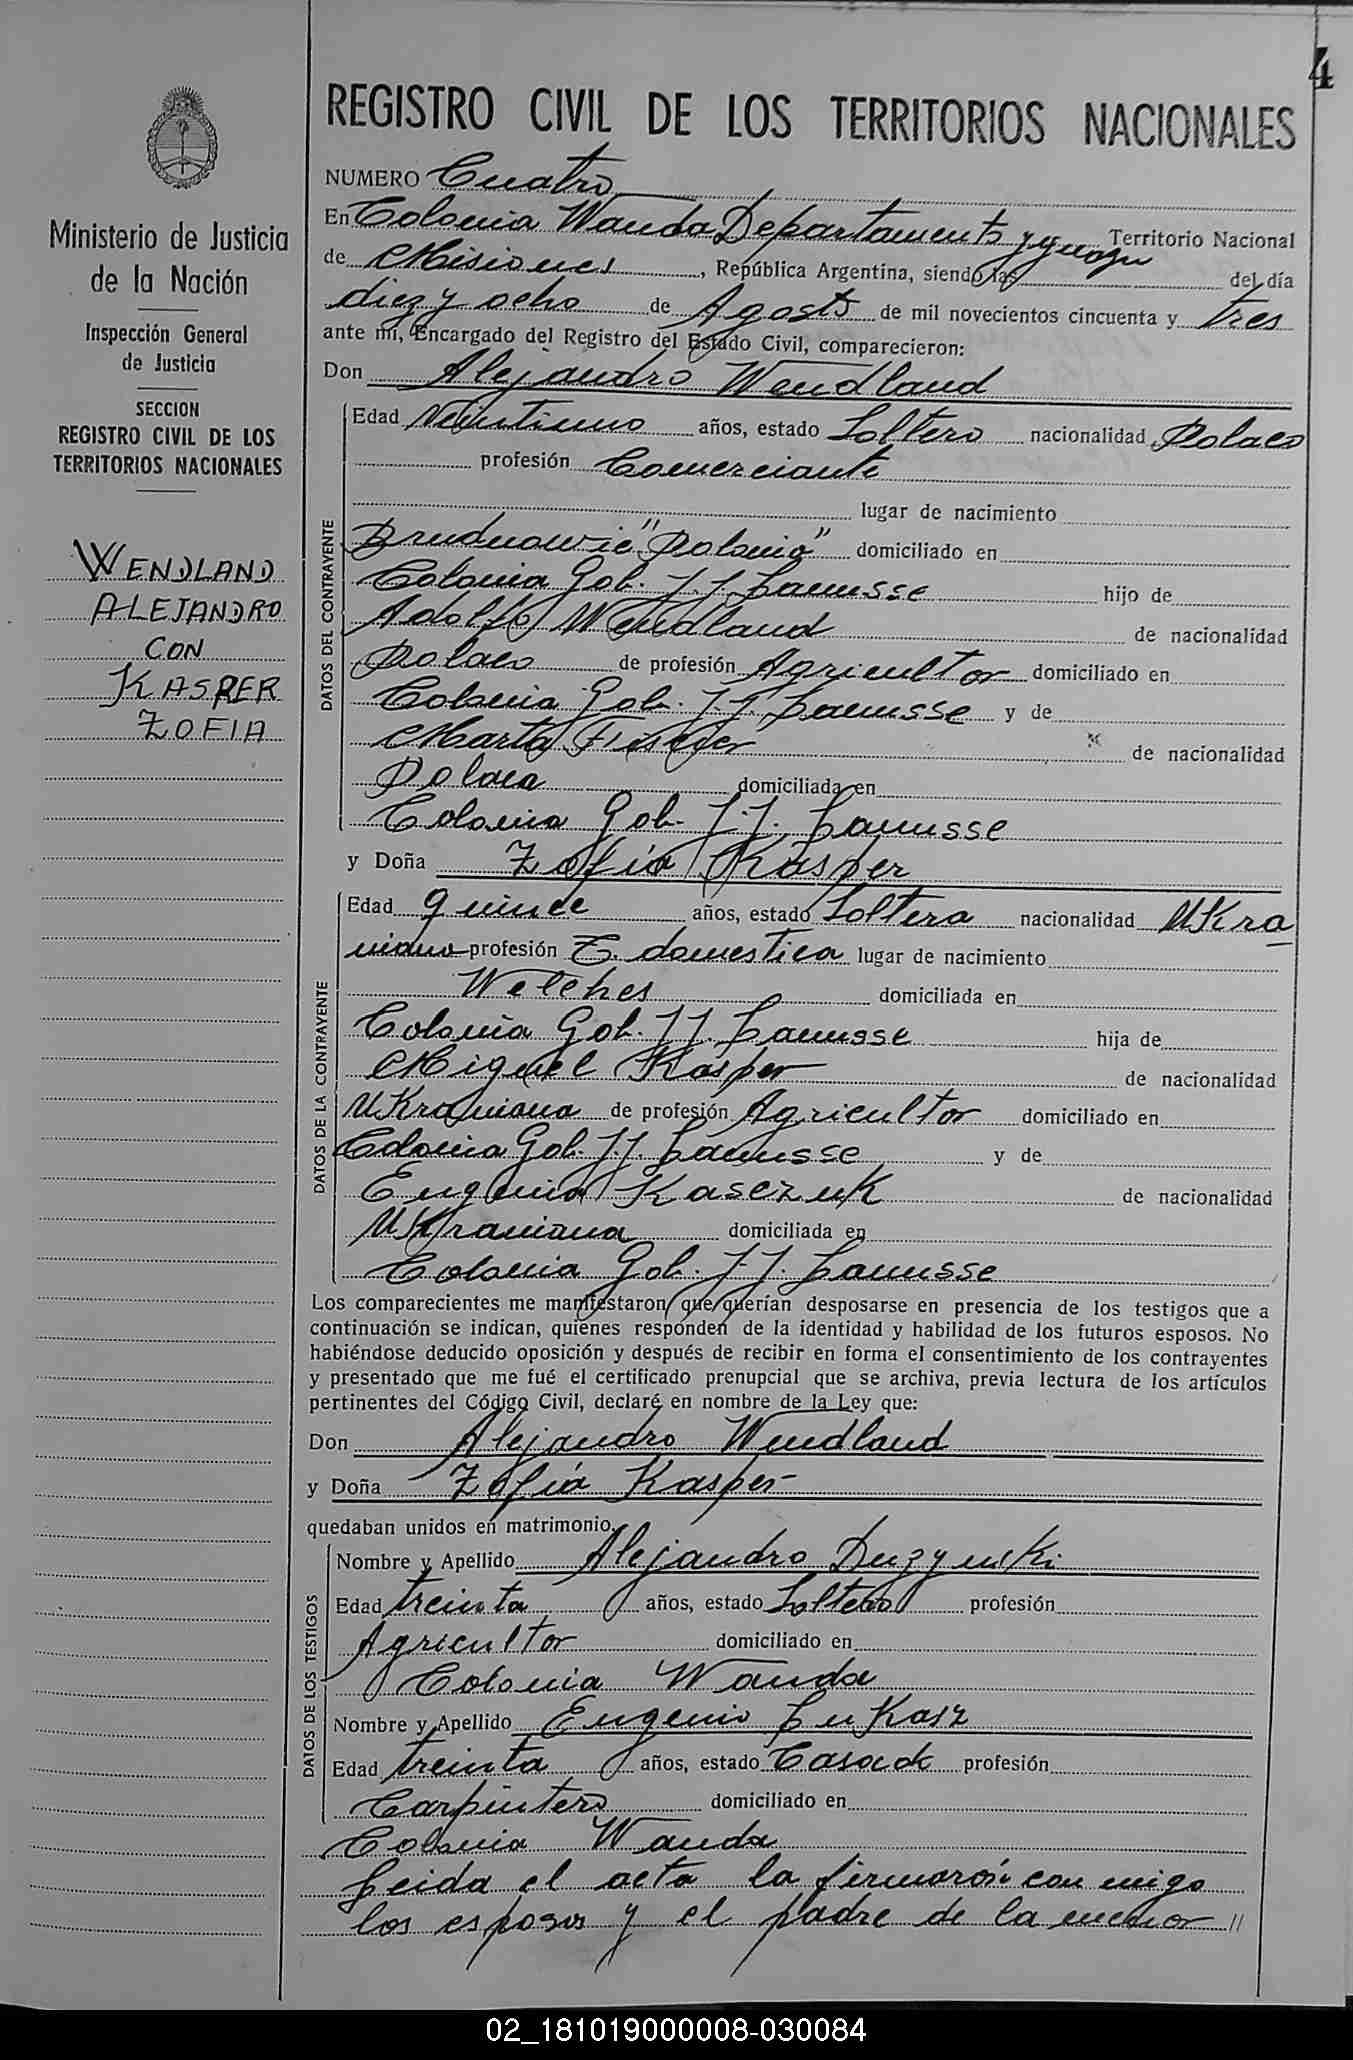 4
REGISTRO CIVIL DE LOS TERRITORIOS NACIONALES
NUMERO Cuatro
En Colonia Wanda Departamento Yguazu Territorio Nacional
de Misiones, República Argentina, siendo las del día
diez y ocho de Agosto de mil novecientos cincuenta y tres
ante mí, Encargado del Registro del Estado Civil, comparecieron:
Don Alejandro Wendland
Edad Veintiuno años, estado Soltero nacionalidad Polaco
profesión Comerciante
lugar de nacimiento
"Polonia" domiciliado en
Colonia Gob. J. J. Lanusse hijo de
Adolfo Wendland de nacionalidad
Polaco de profesión Agricultor domiciliado en
Colonia Gob. J. J. Lanusse y de
Marta de nacionalidad
Polaca domiciliada en
Colonia Gob. J. J. Lanusse
y Doña Zofia Kasper
Edad quince años, estado Soltera nacionalidad Ukra
niana profesión E. domestica lugar de nacimiento
Welches domiciliada en
Colonia Gob. J J. Lanusse hija de
Miguel Kasper de nacionalidad
Ukraniana de profesión Agricultor domiciliado en
Colonia Gob. J. J. Lanusse y de
Eugenia Kasczuk de nacionalidad
Ukraniana domiciliada en
Colonia Gob. J. J. Lanusse
Los comparecientes me manifestaron que querían desposarse en presencia de los testigos que a
continuación se indican, quienes responden de la identidad y habilidad de los futuros esposos. No
habiéndose deducido oposición y después de recibir en forma el consentimiento de los contrayentes
y presentado que me fué el certificado prenupcial que se archiva, previa lectura de los artículos
pertinentes del Código Civil, declaré en nombre de la Ley que:
Don Alejandro Wendland
y Doña Zofia Kasper
quedaban unidos en matrimonio.
Nombre y Apellido Alejandro Duzynski
Edad treinta años, estado Soltero profesión
Agricultor domiciliado en
Colonia Wanda
Nombre y Apellido Eugenio Lukasz
Edad treinta años, estado Casado profesión
Carpintero domiciliado en
Colonia Wanda
Leida el acta la firmarón con migo
los esposos y el padre de la menor //
DATOS DEL CONTRAYENTE
DATOS DE LA CONTRAYENTE
DATOS DE LOS TESTIGOS
Ministerio de Justicia
de la Nación
Inspección General
de Justicia
SECCION
REGISTRO CIVIL DE LOS
TERRITORIOS NACIONALES
WENDLAND
ALEJANDRO
CON
KASPER
ZOFIA
02_181019000008-030084